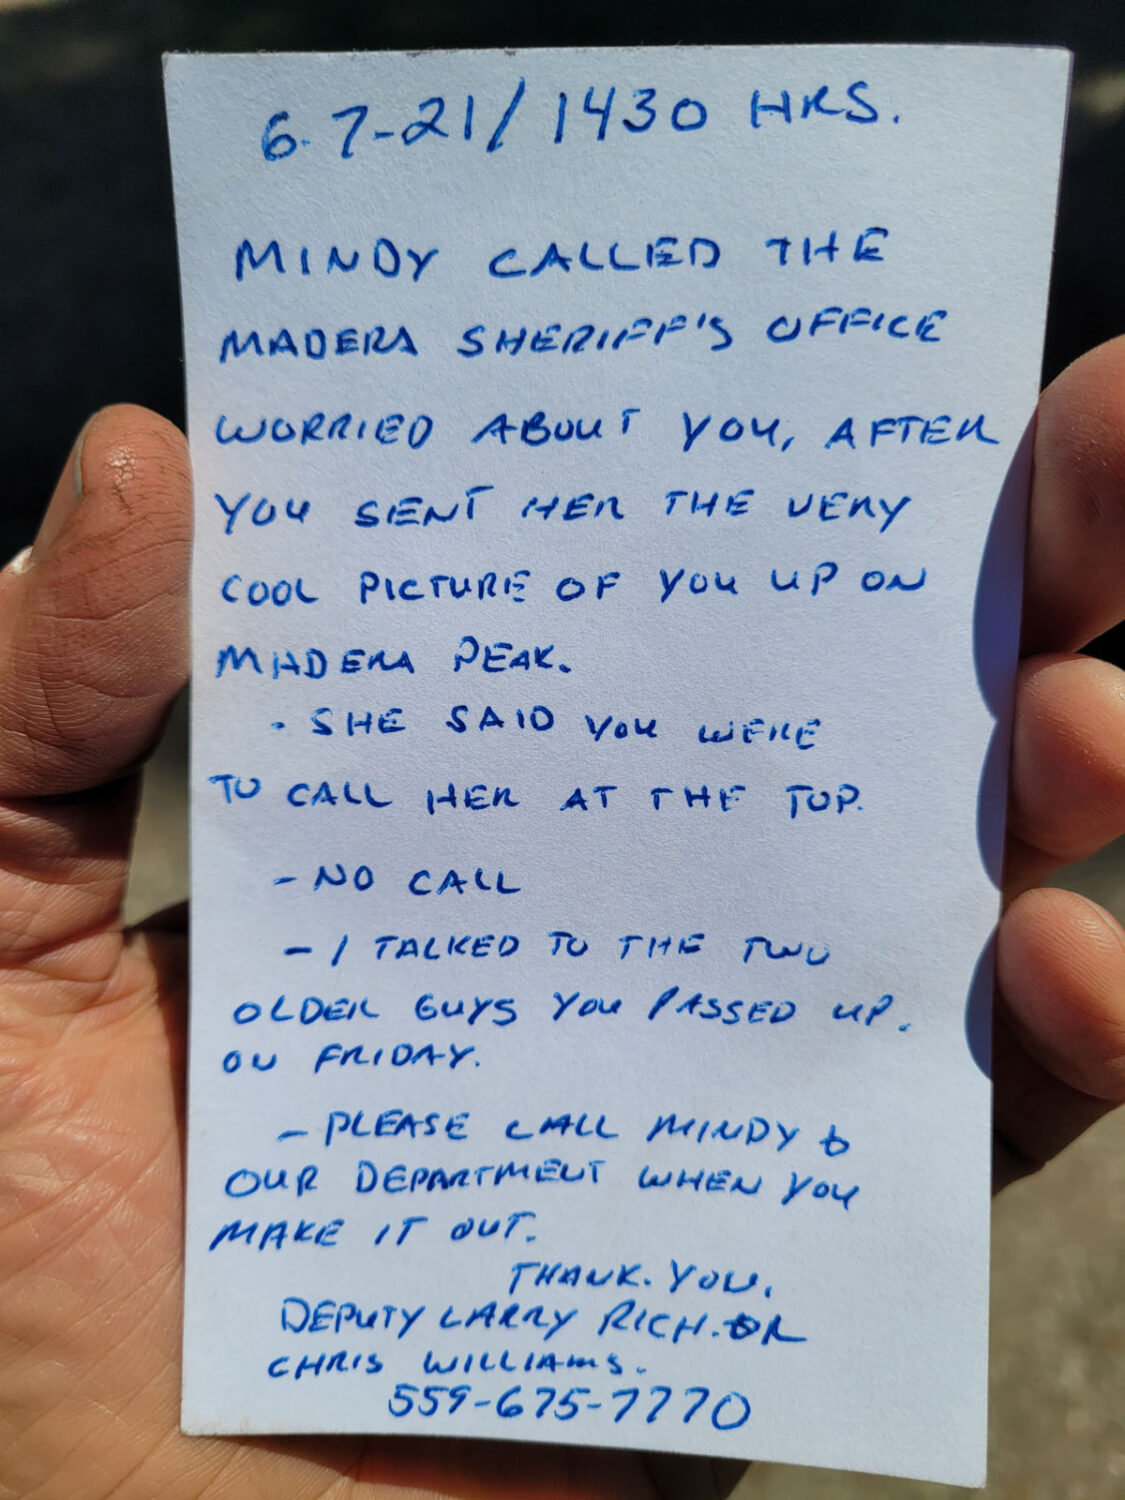 6-7-21/1430 HRS.
MINDY CALLED THE
MADERA SHERIFF'S OFFICE
WORRIED ABOUT YOU, AFTER
YOU SENT HER THE VERY
COOL PICTURE OF YOU UP ON
MADERA PEAK.
- SHE SAID YOU WERE
TO CALL HER AT THE TOP.
- NO CALL
- I TALKED TO THE TWO
OLDER GUYS YOU PASSED UP.
ON FRIDAY.
- PLEASE CALL MINDY &
OUR DEPARTMENT WHEN YOU
MAKE IT OUT.
THANK. YOU,
DEPUTY LARRY RICH. OR
CHRIS WILLIAMS.
559-675-7770